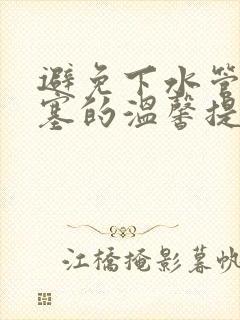 避免下水管
塞的温馨提
江橋掩影暮帆